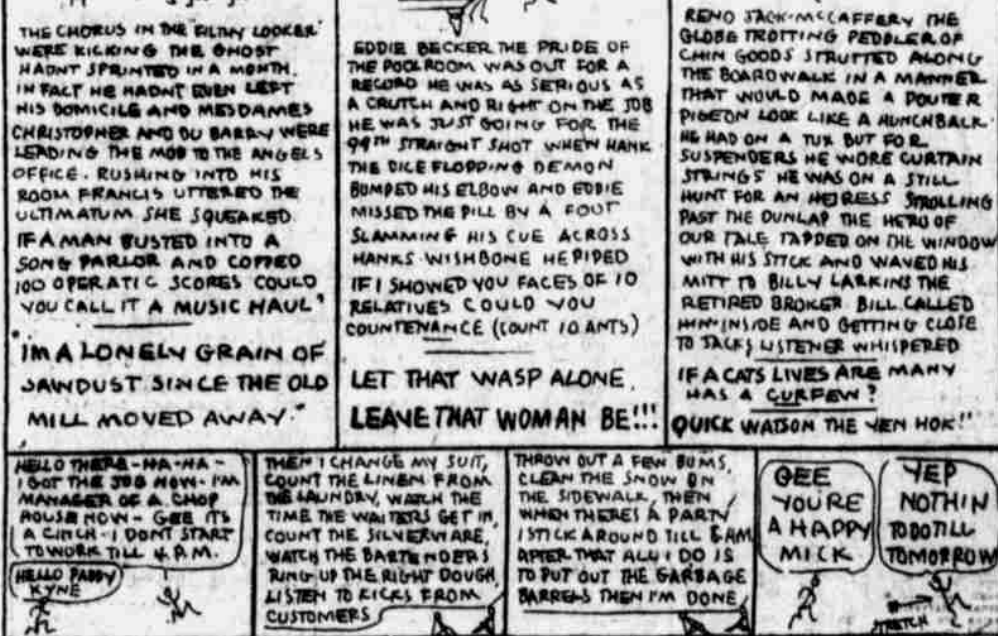 THE CHORUS IN THE "FILTHY LOOKER"
WERE KICKING THE GHOST
HADNT SPRINTED IN A MONTH.
IN FACT HE HADNT EVEN LEFT
HIS DOMICILE AND MESDAMES
CHRISTOPHER AND DU BARRY WERE
LEADING THE MOB TO THE ANGELS
OFFICE. RUSHING INTO HIS
ROOM FRANCIS UTTERED THE
ULTIMATUM SHE SQUEAKED
IF A MAN BUSTED INTO A
SONG PARLOR AND COPPED
100 OPERATIC SCORES COULD
YOU CALL IT A MUSIC HAUL?
"IM A LONELY GRAIN OF
SAWDUST SINCE THE OLD
MILL MOVED AWAY."
EDDIE BECKER THE PRIDE OF
THE POOLROOM WAS OUT FOR A
RECORD HE WAS AS SERIOUS AS
A CRUTCH AND RIGHT ON THE JOB
HE WAS JUST GOING FOR THE
99TH STRAIGHT SHOT WHEN HANK
THE DICE FLOPPING DEMON
BUMPED HIS ELBOW AND EDDIE
MISSED THE PILL BY A FOOT
SLAMMING HIS CUE ACROSS
HANKS WISHBONE HE PIPED
IF I SHOWED YOU FACES OF 10
RELATIVES COULD YOU
COUNTENANCE (COUNT 10 ANTS)
LET THAT WASP ALONE,
LEAVE THAT WOMAN BE!!!
RENO JACK McCAFFERY THE
GLOBE TROTTING PEDDLER OF
CHIN GOODS STRUTTED ALONG
THE BOARDWALK IN A MANNER
THAT WOULD MADE A POUTER
PIGEON LOOK LIKE A HUNCHBACK
HE HAD ON A TUX BUT FOR
SUSPENDERS HE WORE CURTAIN
STRINGS HE WAS ON A STILL
HUNT FOR AN HEIRESS STROLLING
PAST THE DUNLAP THE HERO OF
OUR TALE TAPPED ON THE WINDOW
WITH HIS STICK AND WAVED HIS
MITT TO BILLY LARKINS THE
RETIRED BROKER. BILL CALLED
HIM INSIDE AND GETTING CLOSE
TO JACKS LISTENER WHISPERED
IF A CATS LIVES ARE MANY
HAS A CURFEW?
QUICK WATSON THE YEN HOK!"
HELLO THERE-HA-HA-
I GOT THE JOB NOW-I'M
MANAGER OF A CHOP
HOUSE NOW- GEE ITS
A CINCH-I DONT START
TO WORK TILL 4 P.M.
HELLO PADDY
KYNE
THEN I CHANGE MY SUIT,
COUNT THE LINEN FROM
THE LAUNDRY, WATCH THE
TIME THE WAITERS GET IN,
COUNT THE SILVERWARE,
WATCH THE BARTENDERS
RING UP THE RIGHT DOUGH,
LISTEN TO KICKS FROM
CUSTOMERS
THROW OUT A FEW BUMS,
CLEAN THE SNOW ON
THE SIDEWALK, THEN
WHEN THERES A PARTY
I STICK AROUND TILL 6 AM
AFTER THAT ALL I DO IS
TO PUT OUT THE GARBAGE
BARRELS THEN I'M DONE
GEE
YOURE
A HAPPY
MICK
YEP
NOTHIN
TO DO TILL
TOMORROW
STRETCH